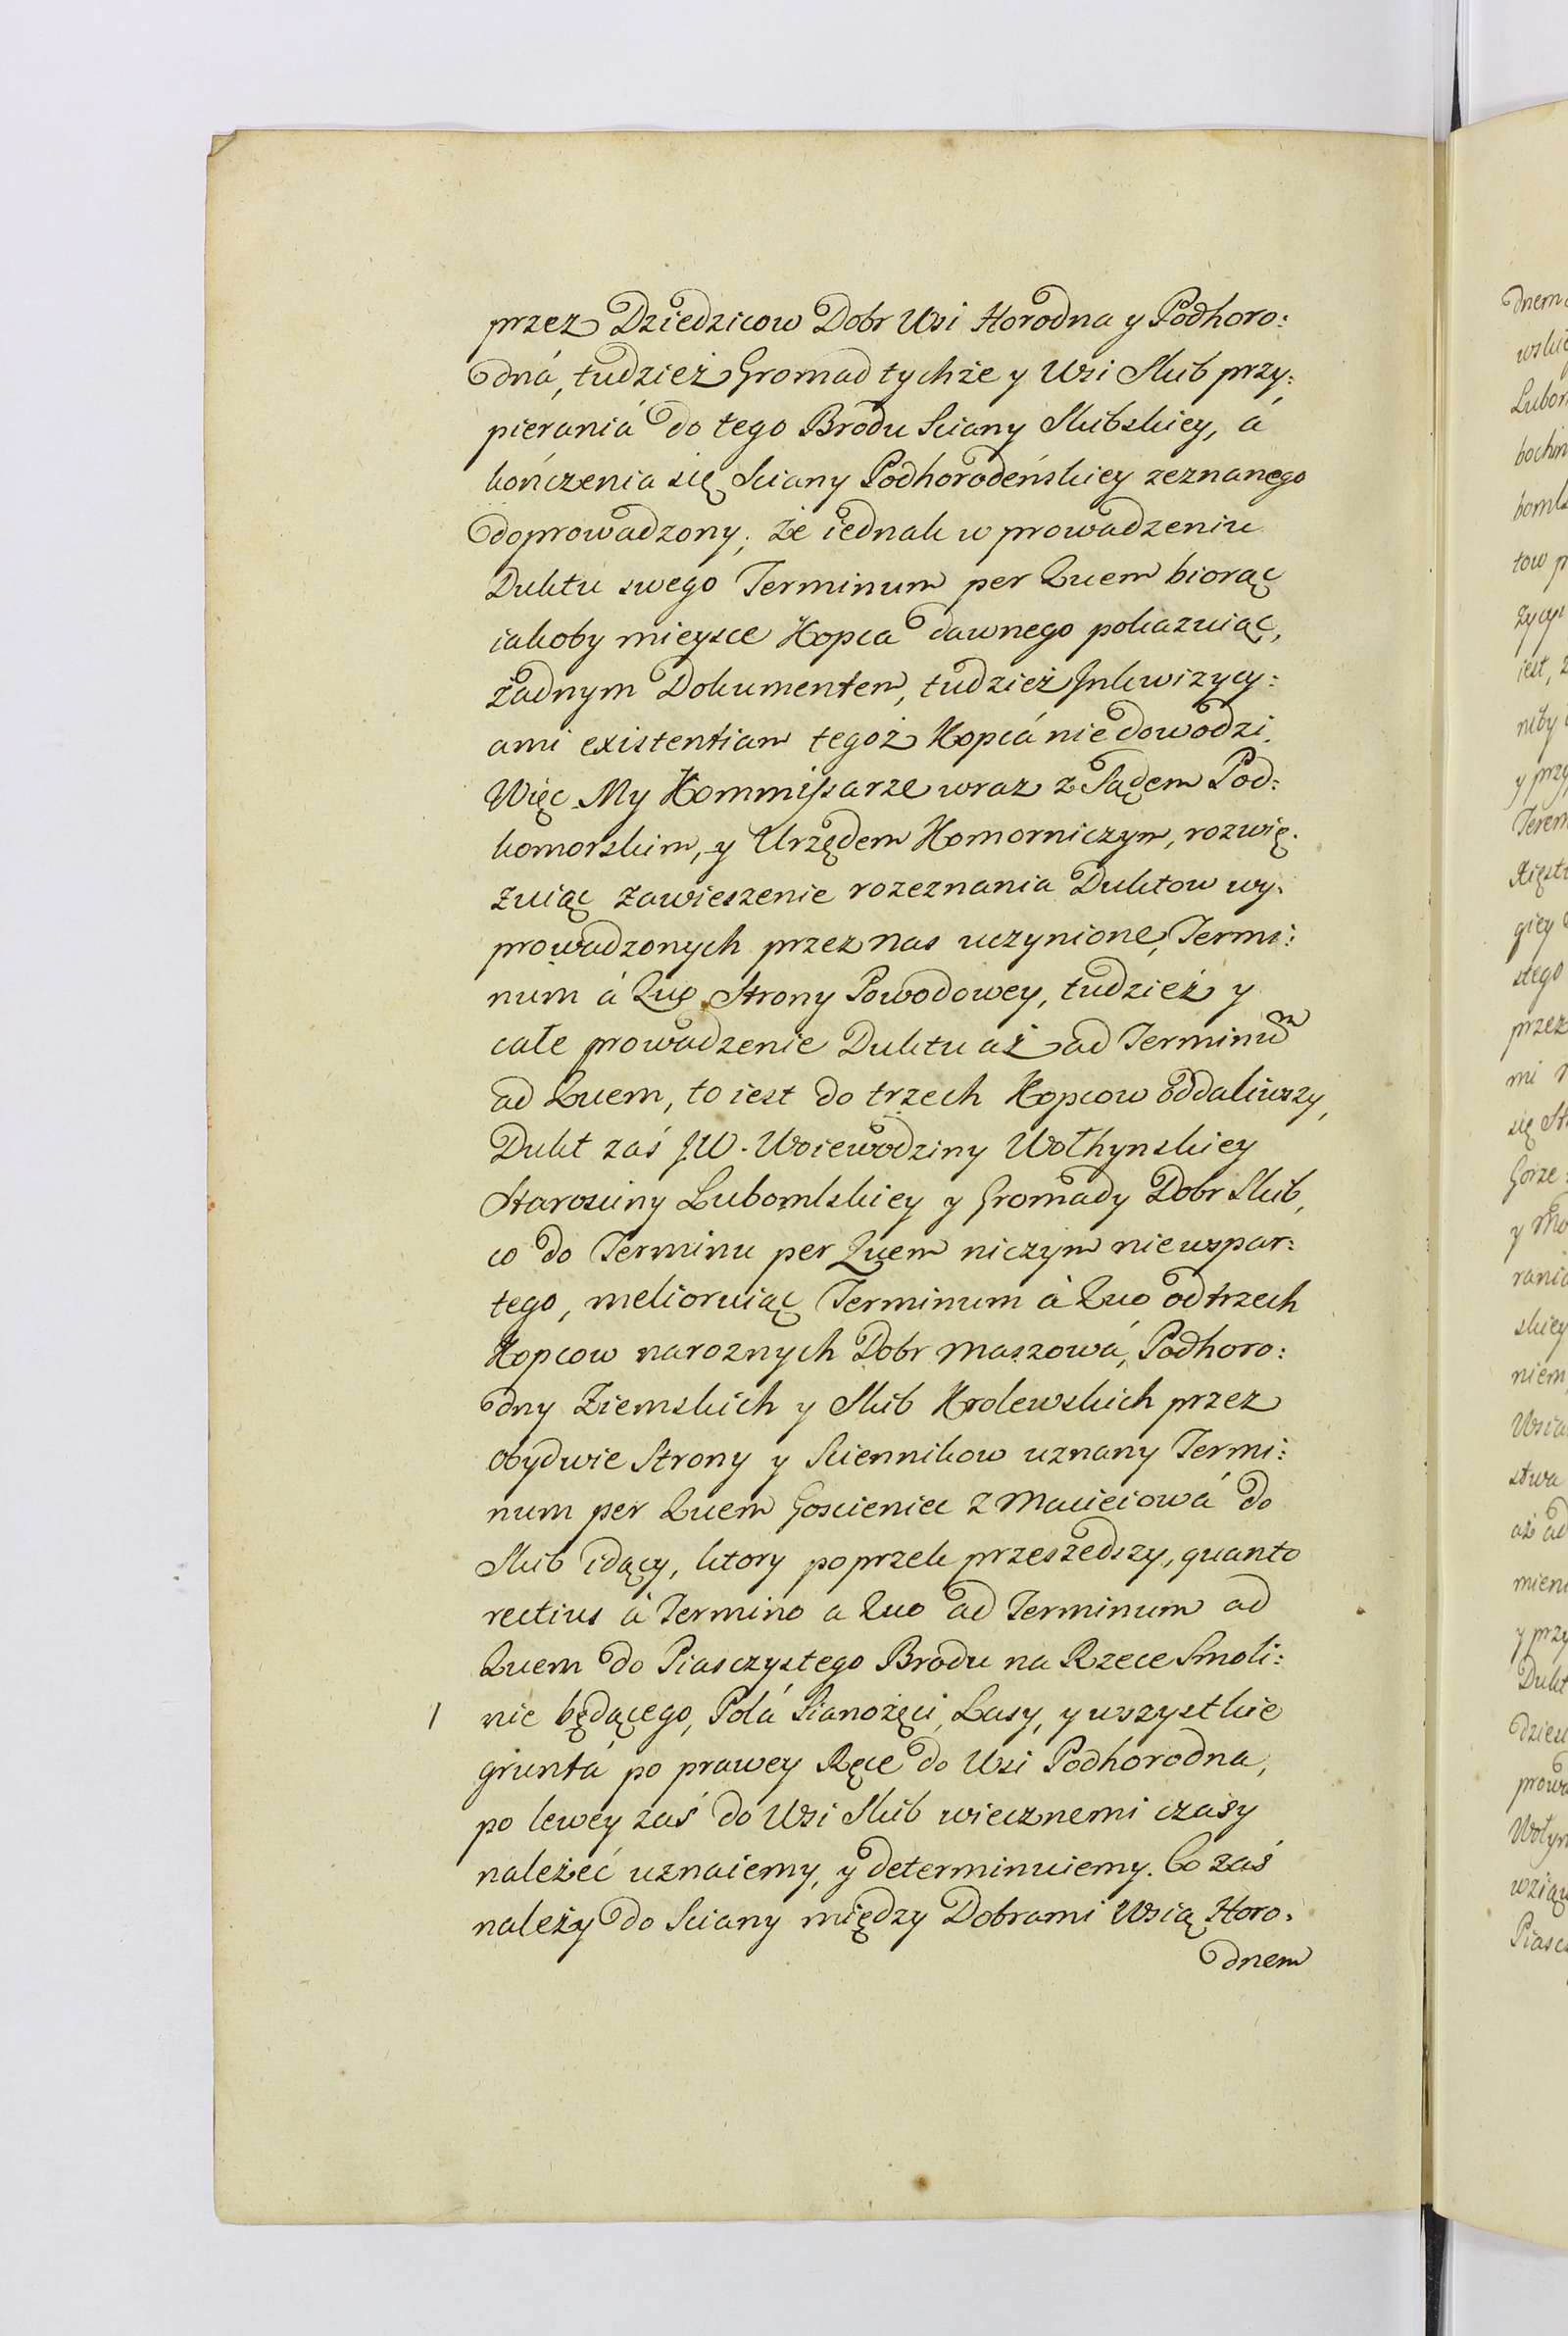 przez Dziedzicow Dobr Wsi Horodna y Podhoro:
dná, tudzież Gromad tychże y Wsi Slub przy:
pierania do tego Brodu Sciany Slubskiey, á
kończenia się Sciany Podhorodeńskiey zeznanego
doprowadzony; że iednak w prowadzeniu
Duktu swego Terminum per Quem biorąc
iakoby mieysce Kopca dawnego pokazuiąc,
żadnym Dokumentem, tudzież Jnkwizycy:
ami existentiam tegoż Kopcá nie dowodzi.
Więc My Kommissarze wraz z Sądem Pod:
komorskim, y Urzędem Komorniczym, rozwię:
zuiąc zawieszenie rozeznania Duktow wy:
prowadzonych przez nas uczynione, Termi:
num á Quo Strony Powodowey, tudzież y
całe prowadzenie Duktu aż ad Terminum
ad Quem, to iest do trzech Kopcow oddaliwszy,
Dukt zaś JW. Woiewodziny Wołhynskiey
Starosciny Lubomlskiey y Gromady Dobr Slub,
co do Terminu per Quem niczym niewspar:
tego, melioruiąc Terminum á Quo od trzech
Kopcow naroznych Dobr Maszowá, Podhoro:
dny Ziemskich y Slub Krolewskich przez
obydwie Strony y Sciennikow uznany Termi:
num per Quem Goscieniec z Macieiowá do
Slub idący, ktory poprzek przeszedszy, quanto
rectius á Termino a Quo ad Terminum ad
Quem do Piasczystego Brodu na Rzece Smoli:
nie będącego, Polá Sianożęci, Lasy, y wszystkie
gruntá po prawey Ręce do Wsi Podhorodna,
po lewey zaś do Wsi Slub wiecznemi czasy
należeć uznaiemy, y determinuiemy. Co zaś
należy do Sciany między Dobrami Wsią Horo:
dnem